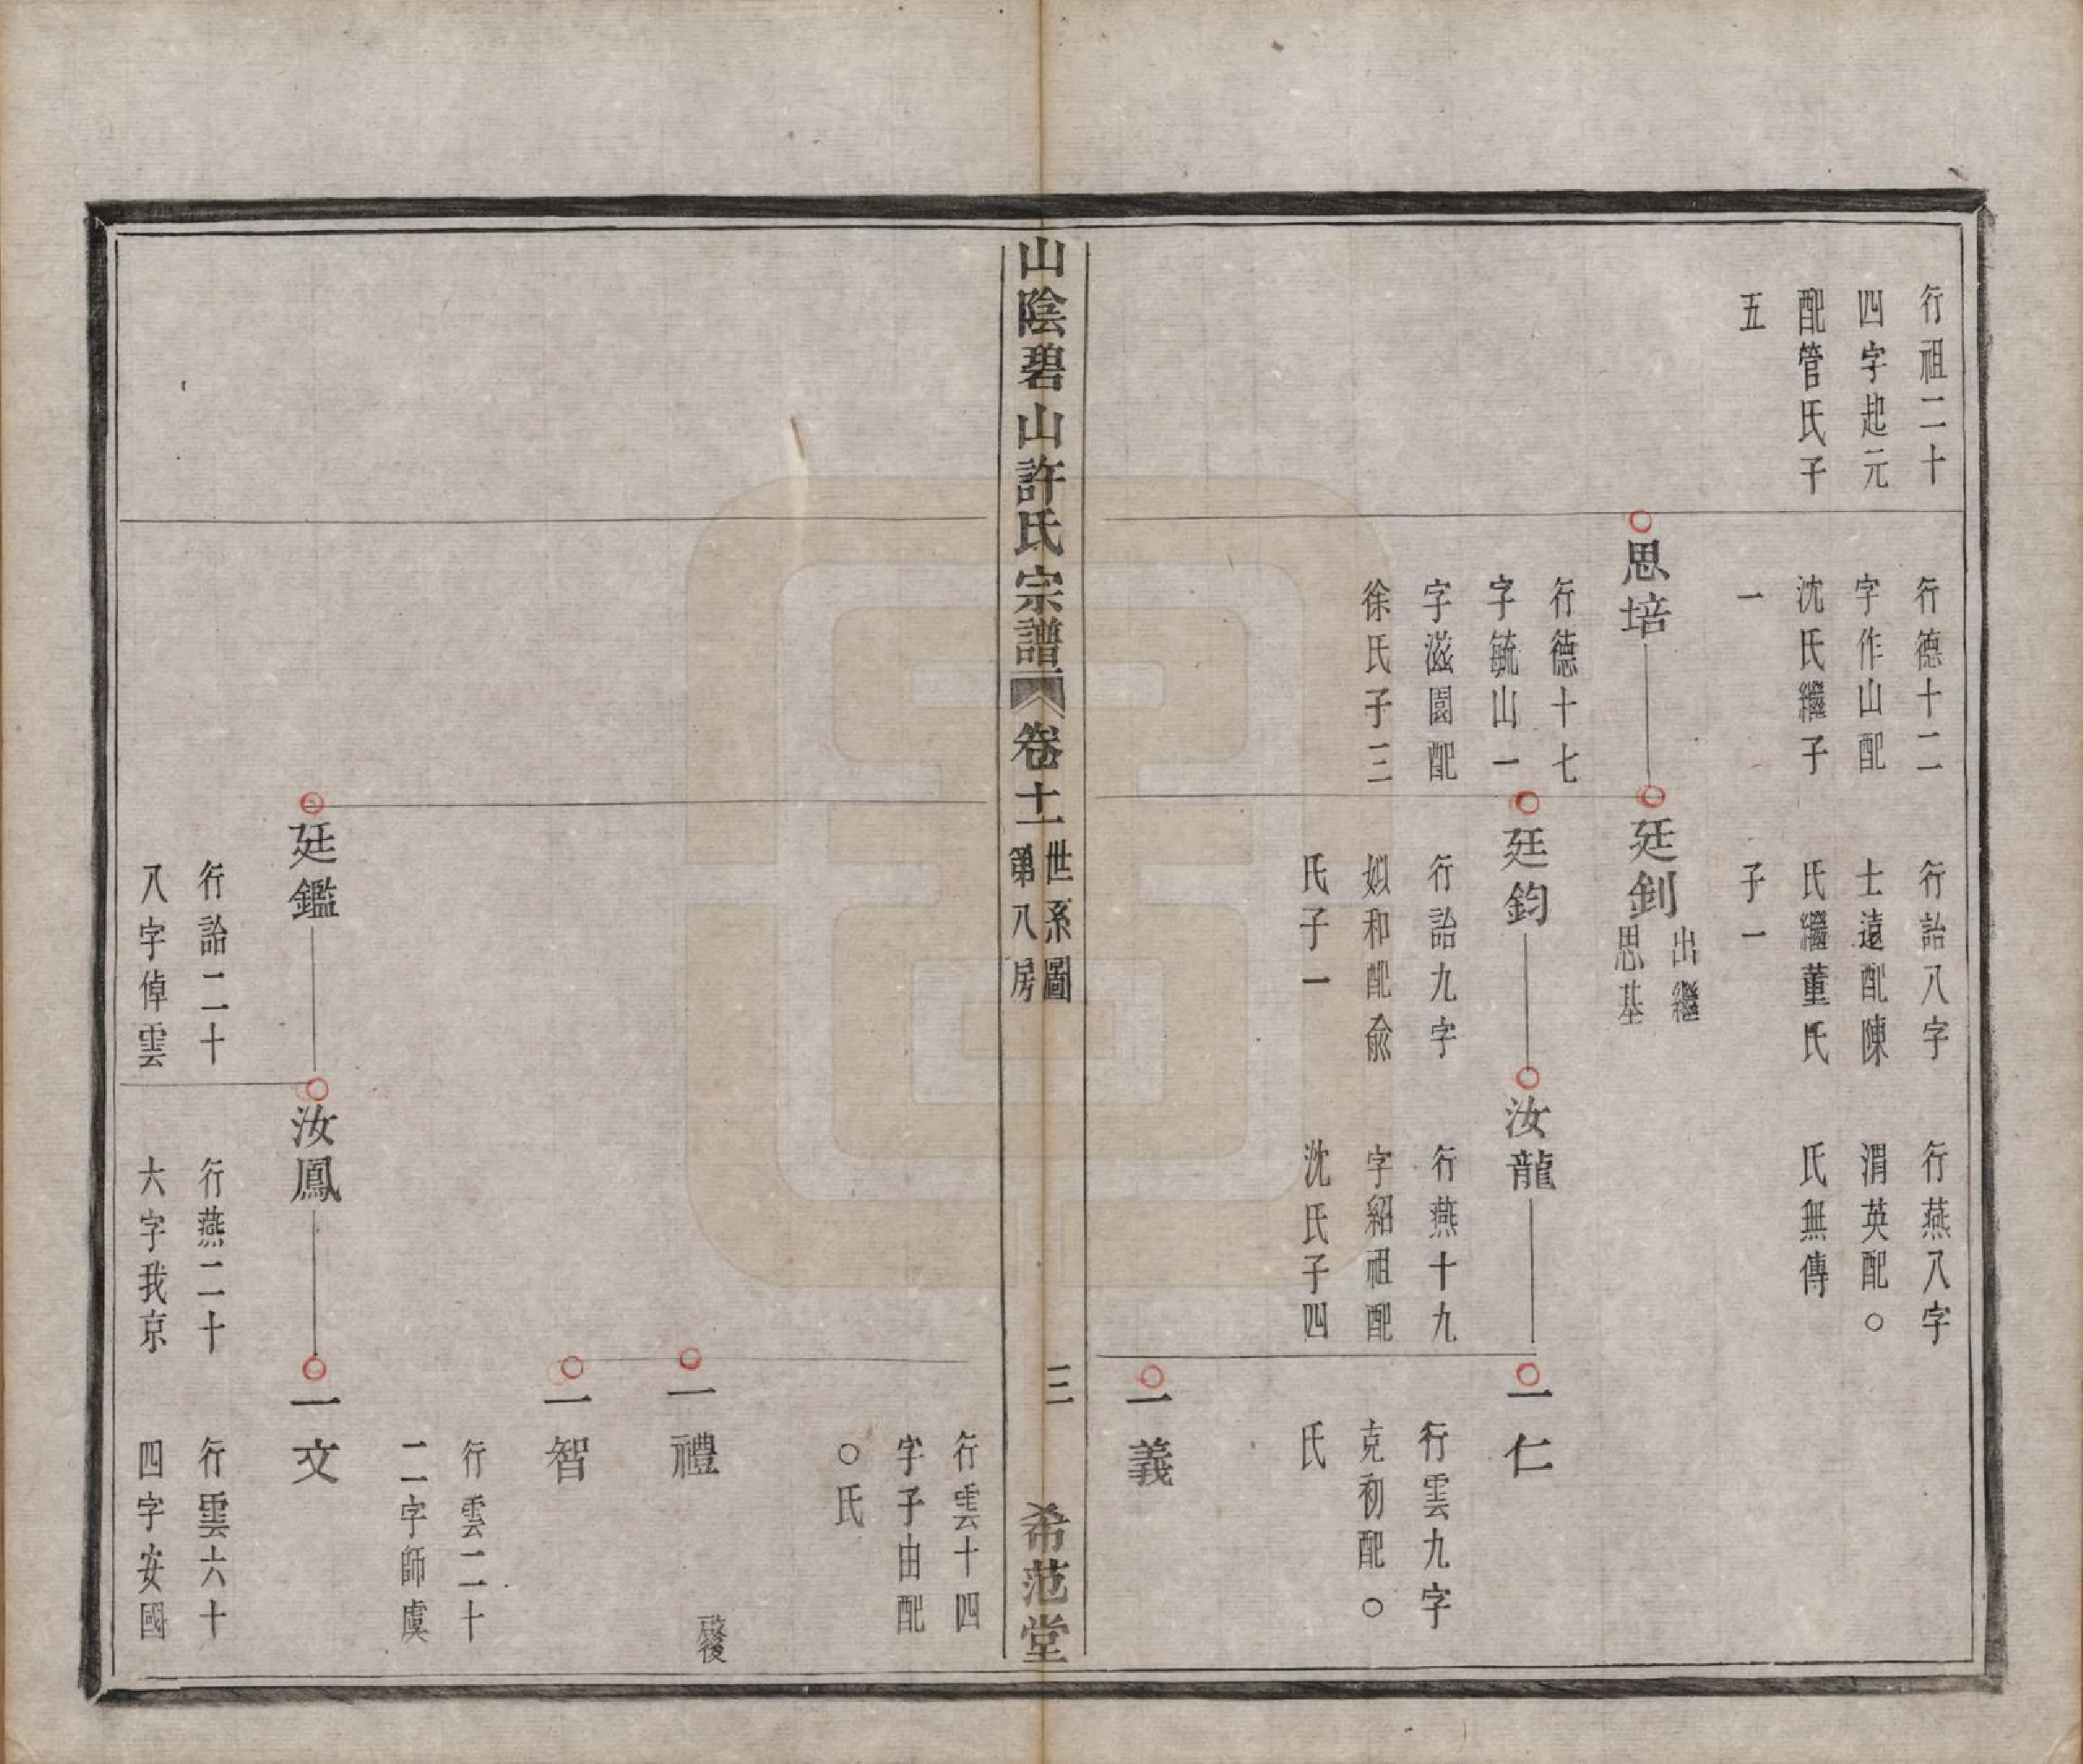 行祖二十
四字起元
配管氏子
五
行德十二
字作山配
沈氏繼子
一
行詒八字
士遠配陳
氏繼董氏
子一
行燕八字
渭英配○
氏無傳
思培
廷釗
出繼
思基
行德十七
字毓山一
字滋園配
徐氏子三
廷鈞
行詒九字
姒和配俞
氏子一
汝龍
行燕十九
字紹祖配
沈氏子四
一仁
行雲九字
克初配○
氏
一義
山陰碧山許氏宗譜
卷十二
世系圖
第八房
三
希范堂
行雲十四
字子由配
○氏
一禮
啟後
一智
行雲二十
二字師虞
廷鑑
行詒二十
八字倬雲
汝鳳
行燕二十
六字我京
一文
行雲六十
四字安國